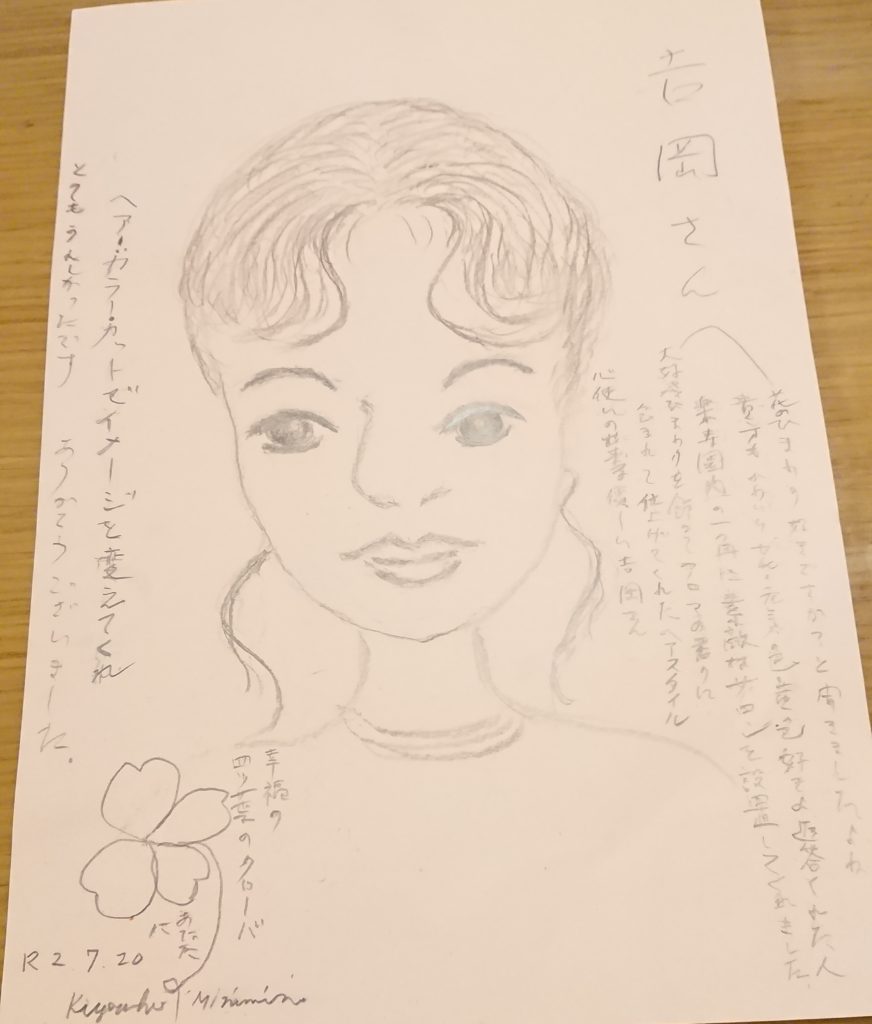 吉岡さんへ
花のひまわり好きですかって聞きましたよね
貴方もひまわりが元気色黄色好きよ返答くれた人
楽寿園内の一角に素敵なサロンを設置してくれました。
大好きひまわりを飾ってアロマの香りに
包まれて仕上げてくれたヘアスタイル
心使いの世事優しい吉岡さん
ヘアーカラー・カットでイメージを変えてくれ
とてもうれしかったです ありがとうございました。
幸福の
四ツ葉のクローバ
あなた
に
R2.7.20